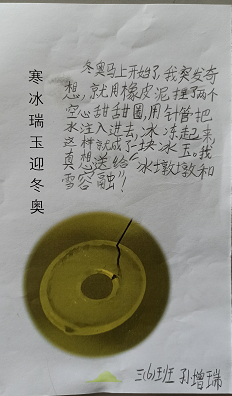 寒冰瑞玉迎冬奥
冬奥马上开始了,我突发奇
想,就用橡皮泥捏了两个
空心甜甜圈,用针管把
水注入进去,冰冻起来,
这样就成了一块冰玉。我
真想送给“冰墩墩和
雪容融”!
三(6)班 孙增瑞